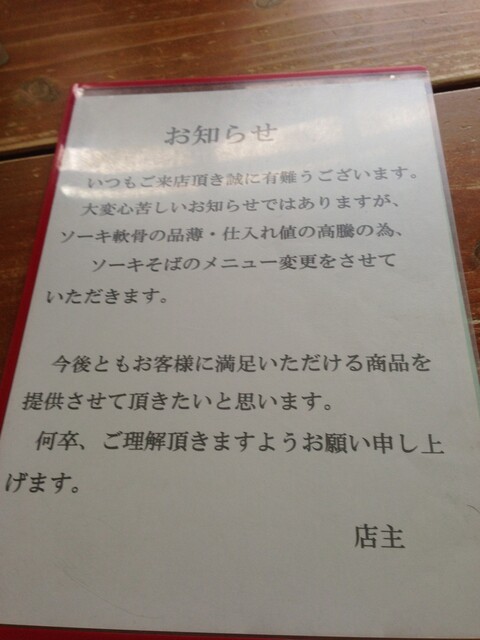 お知らせ
いつもご来店頂き誠に有難うございます。
大変心苦しいお知らせではありますが、
ソーキ軟骨の品薄・仕入れ値の高騰の為、
ソーキそばのメニュー変更をさせて
いただきます。
今後ともお客様に満足いただける商品を
提供させて頂きたいと思います。
何卒、ご理解頂きますようお願い申し上
げます。
店主